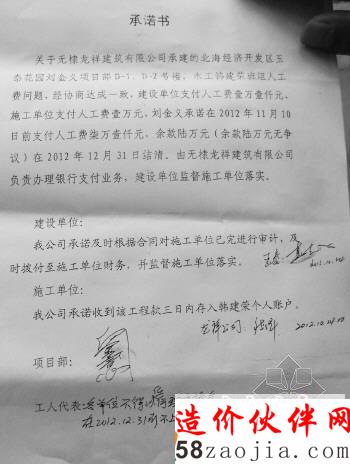 承诺书
关于无棣龙祥建筑有限公司承建的北海经济开发区玉
泰花园刘金义项目部D-1、D-2号楼,木工韩建荣班组人工
费问题,经协商达成一致,建设单位支付人工费壹万壹仟元,
施工单位支付人工费壹万元,刘金义承诺在2012年11月10
日前支付人工费柒万壹仟元,余款陆万元(余款陆万元无争
议)在2012年12月31日结清。由无棣龙祥建筑有限公司
负责办理银行支付业务,建设单位监督施工单位落实。
建设单位:
我公司承诺及时根据合同对施工单位已完进行审计,及
时拨付至施工单位财务,并监督施工单位落实。
2012.10.24
施工单位:
我公司承诺收到该工程款三日内存入韩建荣个人账户。
龙祥公司: 2012.10.24
项目部:
工人代表:
在2012.12.31
造价伙伴网
58zaojia.com